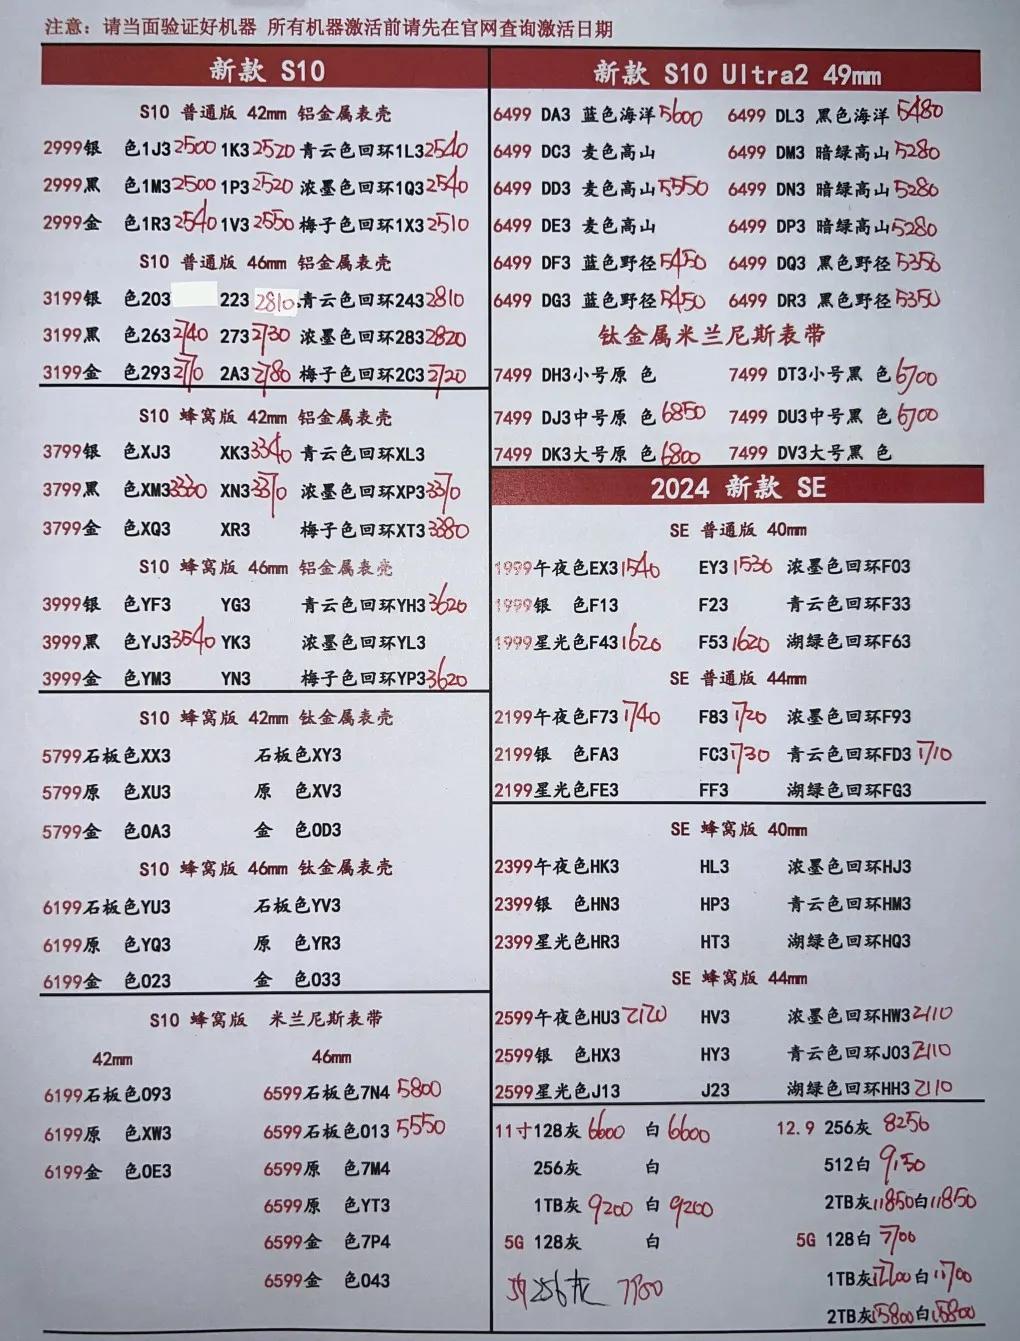 注意：请当面验证好机器 所有机器激活前请先在官网查询激活日期
新款 S10
S10 普通版 42mm 铝金属表壳
2999银 色1J3 2500 1K3 2520 青云色回环1L3 2540
2999黑 色1M3 2500 1P3 2520 浓墨色回环1Q3 2540
2999金 色1R3 2540 1V3 2550 梅子色回环1X3 2510
S10 普通版 46mm 铝金属表壳
3199银 色203 223 2810 青云色回环243 2810
3199黑 色263 2740 273 2730 浓墨色回环283 2820
3199金 色293 2710 2A3 2780 梅子色回环2C3 2720
S10 蜂窝版 42mm 铝金属表壳
3799银 色XJ3 XK3 3340 青云色回环XL3
3799黑 色XM3 3330 XN3 3370 浓墨色回环XP3 3370
3799金 色XQ3 XR3 梅子色回环XT3 3380
S10 蜂窝版 46mm 铝金属表壳
3999银 色YF3 YG3 青云色回环YH3 3620
3999黑 色YJ3 3540 YK3 浓墨色回环YL3
3999金 色YM3 YN3 梅子色回环YP3 3620
S10 蜂窝版 42mm 钛金属表壳
5799石板色XX3 石板色XY3
5799原 色XU3 原 色XV3
5799金 色0A3 金 色0D3
S10 蜂窝版 46mm 钛金属表壳
6199石板色YU3 石板色YV3
6199原 色YQ3 原 色YR3
6199金 色023 金 色033
S10 蜂窝版 米兰尼斯表带
42mm 46mm
6199石板色093 6599石板色7N4 5800
6199原 色XW3 6599石板色013 5550
6199金 色0E3 6599原 色7M4
6599原 色YT3
6599金 色7P4
6599金 色043
新款 S10 Ultra2 49mm
6499 DA3 蓝色海洋 5600 6499 DL3 黑色海洋 5480
6499 DC3 麦色高山 6499 DM3 暗绿高山 5280
6499 DD3 麦色高山 5550 6499 DN3 暗绿高山 5280
6499 DE3 麦色高山 6499 DP3 暗绿高山 5280
6499 DF3 蓝色野径 5450 6499 DQ3 黑色野径 5350
6499 DG3 蓝色野径 5450 6499 DR3 黑色野径 5350
钛金属米兰尼斯表带
7499 DH3小号原 色 7499 DT3小号黑 色 6700
7499 DJ3中号原 色 6850 7499 DU3中号黑 色 6700
7499 DK3大号原 色 6800 7499 DV3大号黑 色
2024 新款 SE
SE 普通版 40mm
1999午夜色EX3 1540 EY3 1530 浓墨色回环F03
1999银 色F13 F23 青云色回环F33
1999星光色F43 1620 F53 1620 湖绿色回环F63
SE 普通版 44mm
2199午夜色F73 1740 F83 1720 浓墨色回环F93
2199银 色FA3 FC3 1730 青云色回环FD3 1710
2199星光色FE3 FF3 湖绿色回环FG3
SE 蜂窝版 40mm
2399午夜色HK3 HL3 浓墨色回环HJ3
2399银 色HN3 HP3 青云色回环HM3
2399星光色HR3 HT3 湖绿色回环HQ3
SE 蜂窝版 44mm
2599午夜色HU3 2120 HV3 浓墨色回环HW3 2110
2599银 色HX3 HY3 青云色回环J03 2110
2599星光色J13 J23 湖绿色回环HH3 2110
11寸128灰 6600 白 6600 12.9 256灰 8250
256灰 白 512白 9150
1TB灰 9200 白 9200 2TB灰 11850 白 11850
5G 128灰 白 5G 128白 7700
256灰 1TB灰 白 11700
2TB灰 15800 白 15800